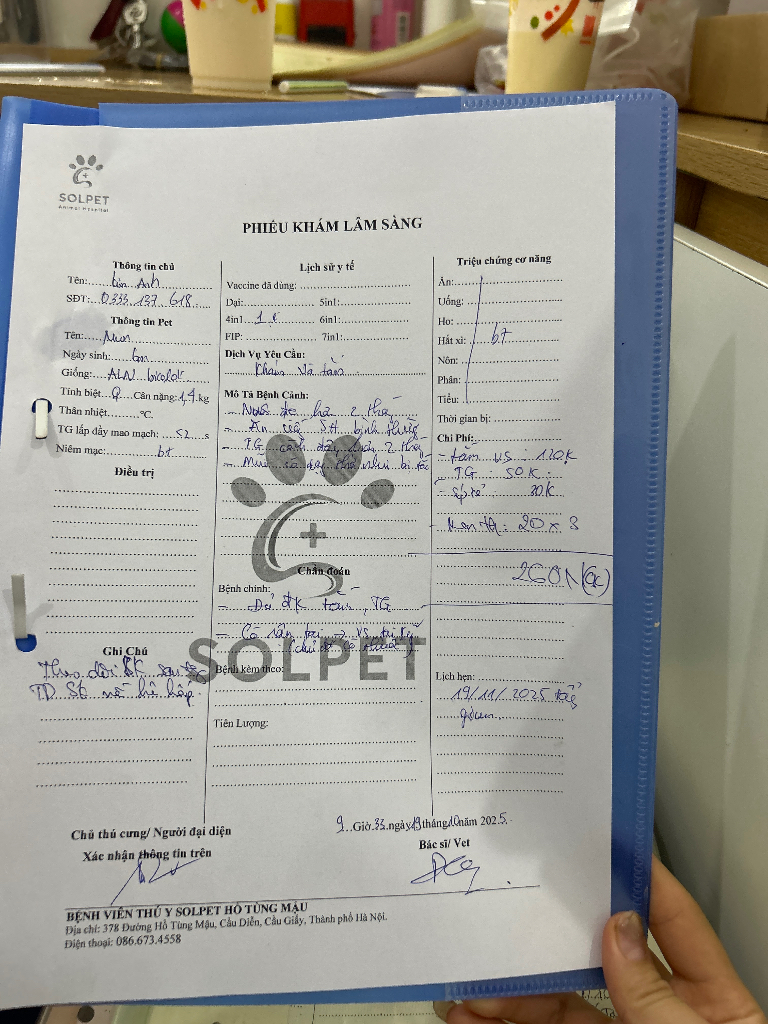 SOLPET
Animal Hospital
PHIẾU KHÁM LÂM SÀNG
Thông tin chủ
Tên: Anh
SĐT: 0333 137 618
Thông tin Pet
Tên: Mun
Ngày sinh: 6m
Giống: ALN bicolor
Tính biệt ♀ Cân nặng: 1,4 kg
Thân nhiệt °C.
TG lấp đầy mao mạch: <2 s
Niêm mạc: bt
Điều trị
Ghi Chú
Theo dõi SK sau
TD về hô hấp
Lịch sử y tế
Vaccine đã dùng:
Dại: 5in1:
4in1 1 6in1:
FIP: 7in1:
Dịch Vụ Yêu Cầu:
Khám và tắm
Mô Tả Bệnh Cảnh:
- 2
- Ăn uống SH bình thường
- TG cách đây 2
- Mũi
Chẩn đoán
Bệnh chính:
- Đủ ĐK tắm, TG
- Có tai → VS tai
SOLPET
Bệnh kèm theo:
Tiên Lượng:
Triệu chứng cơ năng
Ăn:
Uống:
Ho:
Hắt xì: bt
Nôn:
Phân:
Tiểu:
Thời gian bị:
Chi Phí:
- tắm VS: 120K
- TG 50K
- 30K
- 20 x 3
260N (ck)
Lịch hẹn:
19/11/2025 tẩy
giun
9 Giờ 33 ngày 19 tháng 10 năm 2025
Chủ thú cưng/ Người đại diện
Xác nhận thông tin trên
Bác sĩ/ Vet
BỆNH VIỆN THÚ Y SOLPET HỒ TÙNG MẬU
Địa chỉ: 378 Đường Hồ Tùng Mậu, Cầu Diễn, Cầu Giấy, Thành phố Hà Nội.
Điện thoại: 086.673.4558